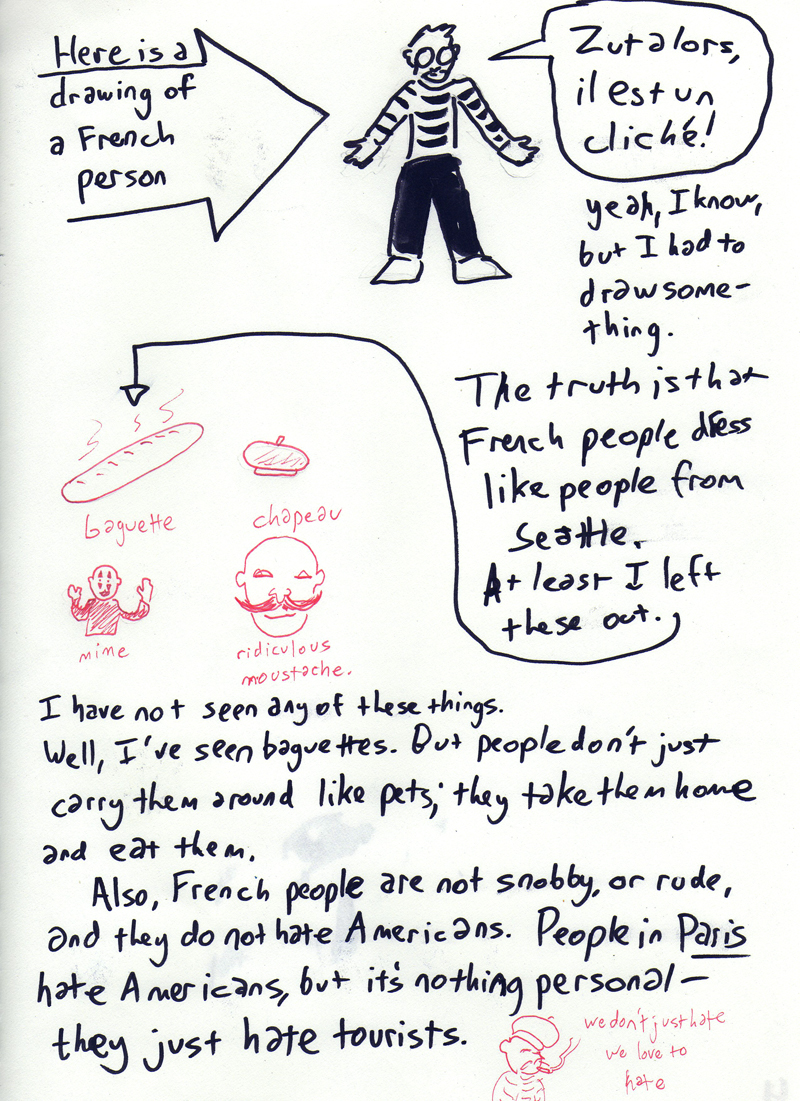 Here is a
drawing of
a French
person
Zut alors,
il est un
cliché!
yeah, I know,
but I had to
draw some-
thing.
The truth is that
French people dress
like people from
Seattle.
At least I left
these out.
baguette
chapeau
mime
ridiculous
moustache.
I have not seen any of these things.
Well, I've seen baguettes. But people don't just
carry them around like pets; they take them home
and eat them.
Also, French people are not snobby, or rude,
and they do not hate Americans. People in Paris
hate Americans, but it's nothing personal—
they just hate tourists.
we don't just hate
we love to
hate